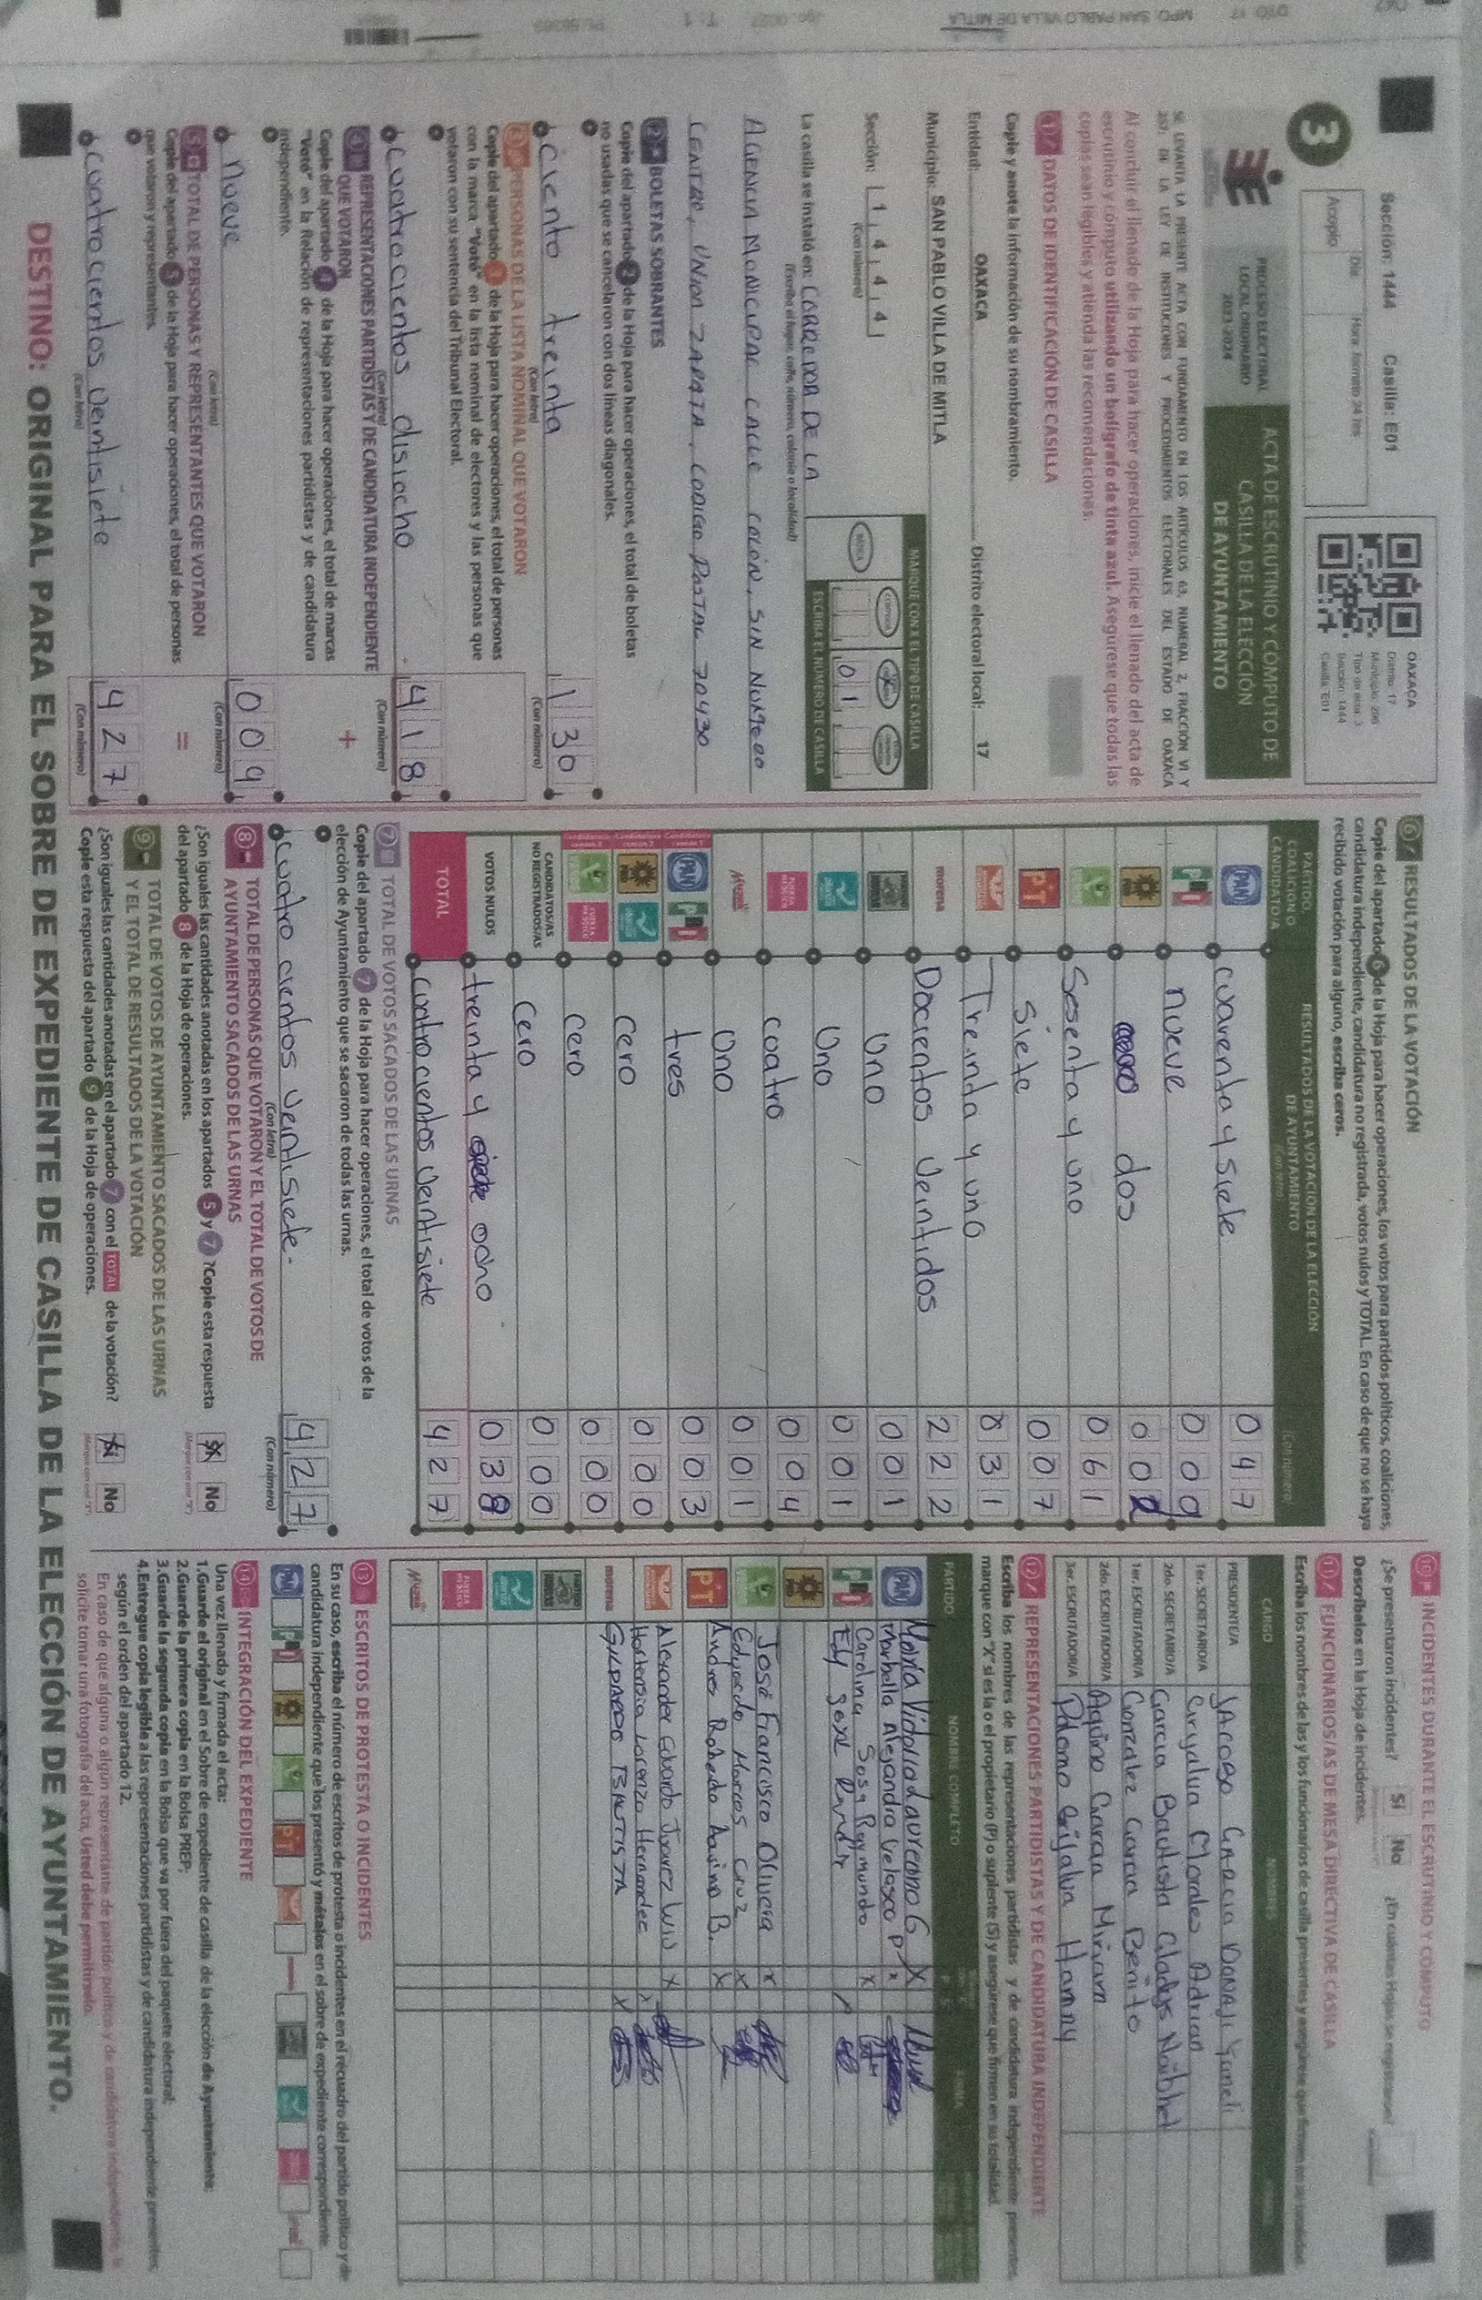 Sección: 1444 Casilla: E01
3
Acopio
Día
Hora formato 24 hrs
OAXACA
Distrito: 17
Sección: 1444
Casilla: E01
PROCESO ELECTORAL
LOCAL ORDINARIO
2023-2024
ACTA DE ESCRUTINIO Y CÓMPUTO DE
CASILLA DE LA ELECCIÓN
DE AYUNTAMIENTO
SE LEVANTA LA PRESENTE ACTA CON FUNDAMENTO EN LOS ARTÍCULOS 63, NUMERAL 2, FRACCIÓN VI Y
DE LA LEY DE INSTITUCIONES Y PROCEDIMIENTOS ELECTORALES DEL ESTADO DE OAXACA
Al concluir el llenado de la Hoja para hacer operaciones, inicie el llenado del acta de
escrutinio y cómputo utilizando un bolígrafo de tinta azul. Asegúrese que todas las
copias sean legibles y atienda las recomendaciones.
1 DATOS DE IDENTIFICACIÓN DE CASILLA
Copie y anote la información de su nombramiento.
Entidad: OAXACA Distrito electoral local: 17
Municipio: SAN PABLO VILLA DE MITLA
Sección: 1 4 4 4
(Con número)
MARQUE CON X EL TIPO DE CASILLA
ESCRIBA EL NÚMERO DE CASILLA
0 1
La casilla se instaló en: CORREDOR DE LA
(Escriba el lugar, calle, número, colonia o localidad)
AGENCIA MUNICIPAL CALLE COLÓN, SIN NUMERO
CENTRO, UNION ZAPATA, CODIGO POSTAL 70430
2 BOLETAS SOBRANTES
Copie del apartado 2 de la Hoja para hacer operaciones, el total de boletas
no usadas que se cancelaron con dos líneas diagonales.
Ciento treinta 130
(Con letra) (Con número)
3 PERSONAS DE LA LISTA NOMINAL QUE VOTARON
Copie del apartado 3 de la Hoja para hacer operaciones, el total de personas
con la marca "Votó" en la lista nominal de electores y las personas que
votaron con su sentencia del Tribunal Electoral.
Cuatrocientos disiocho 418
(Con letra) (Con número)
4 REPRESENTACIONES PARTIDISTAS Y DE CANDIDATURA INDEPENDIENTE
QUE VOTARON
Copie del apartado 4 de la Hoja para hacer operaciones, el total de marcas
"Votó" en la Relación de representaciones partidistas y de candidatura
independiente.
+
nueve 009
(Con letra) (Con número)
5 TOTAL DE PERSONAS Y REPRESENTANTES QUE VOTARON
Copie del apartado 5 de la Hoja para hacer operaciones, el total de personas
que votaron y representantes.
=
Cuatrocientos Veintisiete 427
(Con letra) (Con número)
6 RESULTADOS DE LA VOTACIÓN
Copie del apartado 6 de la Hoja para hacer operaciones, los votos para partidos políticos, coaliciones,
candidatura independiente, candidatura no registrada, votos nulos y TOTAL. En caso de que no se haya
recibido votación para alguno, escriba ceros.
PARTIDO, COALICIÓN O CANDIDATO/A
RESULTADOS DE LA VOTACIÓN DE LA ELECCIÓN
DE AYUNTAMIENTO
(Con número)
PAN cuarenta y siete 047
PRI nueve 009
PRD dos 002
Sesenta y uno 061
PT siete 007
Treinta y uno 031
morena Docientos Veintidos 222
Uno 001
Uno 001
FUERZA MÉXICO coatro 004
Mujer Uno 001
PAN PRI tres 003
Cero 000
Cero 000
CANDIDATOS/AS NO REGISTRADOS/AS Cero 000
VOTOS NULOS treinta y ocho 038
TOTAL Cuatrocientos Veintisiete 427
7 TOTAL DE VOTOS SACADOS DE LAS URNAS
Copie del apartado 7 de la Hoja para hacer operaciones, el total de votos de la
elección de Ayuntamiento que se sacaron de todas las urnas.
cuatrocientos Veintisiete. 427
(Con letra) (Con número)
8 TOTAL DE PERSONAS QUE VOTARON Y EL TOTAL DE VOTOS DE
AYUNTAMIENTO SACADOS DE LAS URNAS
¿Son iguales las cantidades anotadas en los apartados 5 y 7? Copie esta respuesta
del apartado 8 de la Hoja de operaciones.
Sí No
9 TOTAL DE VOTOS DE AYUNTAMIENTO SACADOS DE LAS URNAS
Y EL TOTAL DE RESULTADOS DE LA VOTACIÓN
¿Son iguales las cantidades anotadas en el apartado 7 con el TOTAL de la votación?
Copie esta respuesta del apartado 9 de la Hoja de operaciones.
Sí No
10 INCIDENTES DURANTE EL ESCRUTINIO Y CÓMPUTO
¿Se presentaron incidentes? Sí No ¿En cuántas Hojas se registraron?
Descríbalos en la Hoja de incidentes.
11 FUNCIONARIOS/AS DE MESA DIRECTIVA DE CASILLA
Escriba los nombres de las y los funcionarios de casilla presentes y asegúrese que firmen en su totalidad.
CARGO NOMBRES
PRESIDENTE/A JACOBO GARCIA DONAJI Yaneli
1er. SECRETARIO/A Grijalva Morales Adrian
2do. SECRETARIO/A Garcia Bautista Gladys Naibhet
1er. ESCRUTADOR/A Gonzalez Garcia Benito
2do. ESCRUTADOR/A Aquino Garcia Miriam
3er. ESCRUTADOR/A Palomo Grijalva Hanny
12 REPRESENTACIONES PARTIDISTAS Y DE CANDIDATURA INDEPENDIENTE
Escriba los nombres de las representaciones partidistas y de candidatura independiente presentes,
marque con "X" si es la o el propietario (P) o suplente (S) y asegúrese que firmen en su totalidad.
PARTIDO NOMBRE COMPLETO FIRMA
PAN María Vidalia Laureano G X
Marbella Alejandra Velasco P x
Carolina Sosa Raymundo x
José Francisco Olivera x
Eduardo Marcos Cruz x
PT Andres Aquino B. x
Alexander Eduardo Juarez Luis x
Hortensia Lorenzo Hernandez x
morena GILDARDO BAUTISTA x
FUERZA MÉXICO
Mujer
13 ESCRITOS DE PROTESTA O INCIDENTES
En su caso, escriba el número de escritos de protesta o incidentes en el recuadro del partido político y de
candidatura independiente que los presentó y métalos en el sobre de expediente correspondiente.
14 INTEGRACIÓN DEL EXPEDIENTE
Una vez llenada y firmada el acta:
1.Guarde el original en el Sobre de expediente de casilla de la elección de Ayuntamiento;
2.Guarde la primera copia en la Bolsa PREP;
3.Guarde la segunda copia en la Bolsa que va por fuera del paquete electoral;
4.Entregue copia legible a las representaciones partidistas y de candidatura independiente presentes,
según el orden del apartado 12.
En caso de que alguna o algún representante de partido político y de candidatura independiente, le
solicite tomar una fotografía del acta, Usted debe permitírselo.
DESTINO: ORIGINAL PARA EL SOBRE DE EXPEDIENTE DE CASILLA DE LA ELECCIÓN DE AYUNTAMIENTO.
DTO 17 MPO. SAN PABLO VILLA DE MITLA